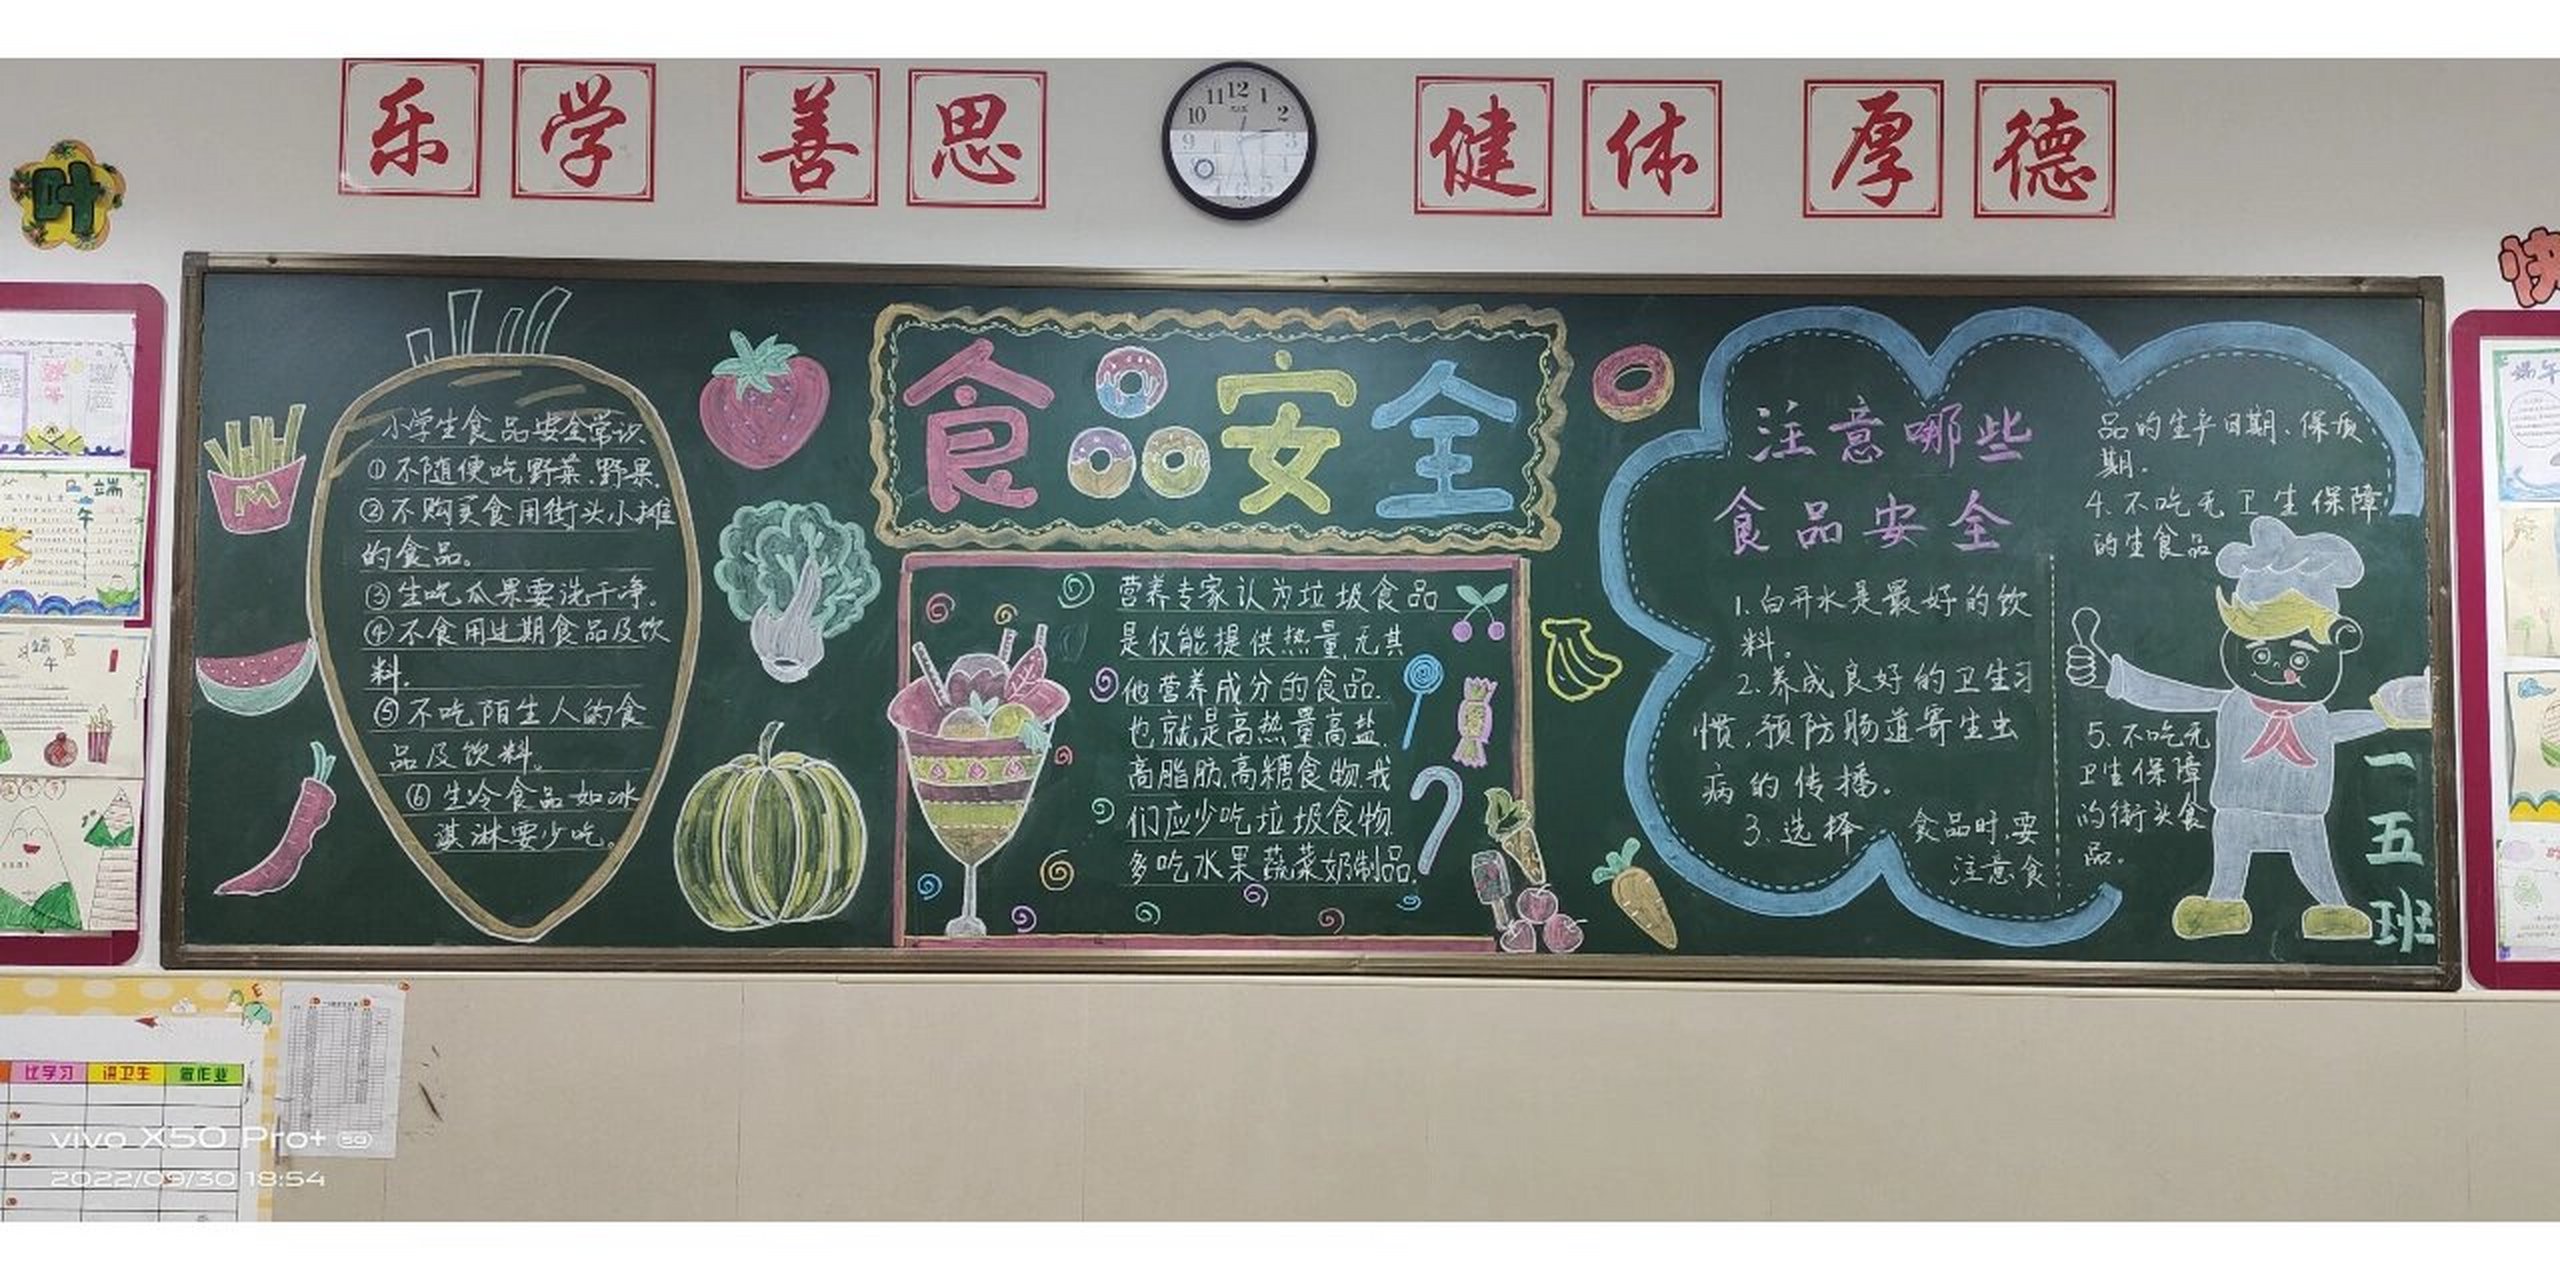 乐学 善思 健体 厚德
叶
快
12
1
2
3
4
5
6
7
9
10
11
食品安全
小学生食品安全常识
①不随便吃野菜.野果.
②不购买食用街头小摊
的食品。
③生吃瓜果要洗干净.
④不食用过期食品及饮
料.
⑤不吃陌生人的食
品及饮料。
⑥生冷食品如冰
淇淋要少吃。
M
营养专家认为垃圾食品
是仅能提供热量,无其
他营养成分的食品.
也就是高热量,高盐.
高脂肪.高糖食物.我
们应少吃垃圾食物
多吃水果蔬菜奶制品.
注意哪些
食品安全
1.白开水是最好的饮
料。
2.养成良好的卫生习
惯,预防肠道寄生虫
病的传播。
3.选择 食品时,要
注意食
品的生产日期、保质
期.
4.不吃无卫生保障
的生食品
5.不吃无
卫生保障
的街头食
品。
一五班
端午
端午
端午
比学习
讲卫生
做作业
vivo X50 Pro+ 5G
2022/09/30 18:54